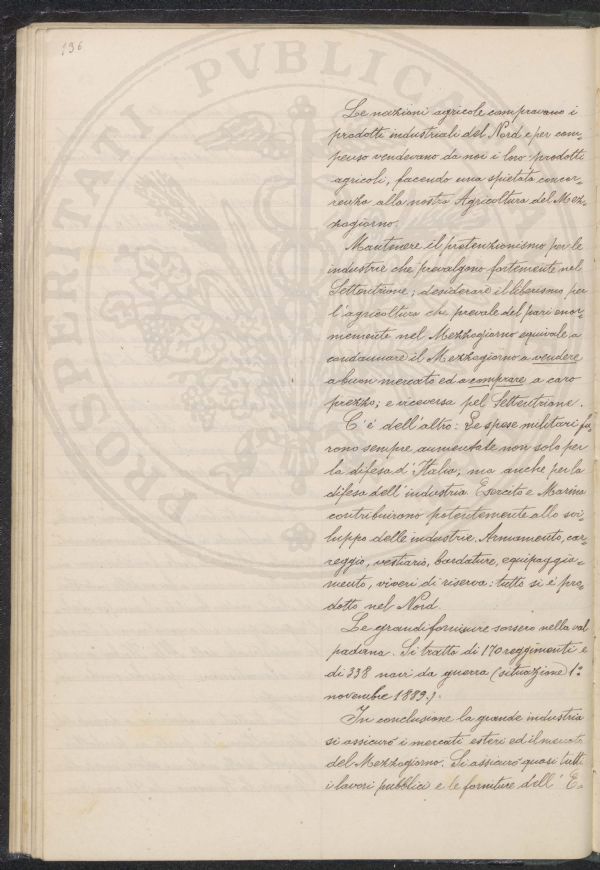 196
PROSPERITATI PVBLICAE
Le nazioni agricole compravano i
prodotti industriali del Nord e per com-
penso vendevano da noi i loro prodotti
agricoli, facendo una spietata concor-
renza alla nostra Agricoltura del Mez-
zogiorno.
Mantenere il protenzionismo per le
industrie che prevalgono fortemente nel
Settentrione; desiderare il liberismo per
l'agricoltura che prevale del pari enor-
memente nel Mezzogiorno equivale a
condannare il Mezzogiorno a vendere
a buon mercato ed a comprare a caro
prezzo; e viceversa pel Settentrione.
C'è dell'altro: Le spese militari fu-
rono sempre aumentate non solo per
la difesa d'Italia, ma anche per la
difesa dell'industria. Esercito e Marina
contribuirono potentemente allo svi-
luppo delle industrie. Armamento, car-
reggio, vestiario, bardature, equipaggia-
mento, viveri di riserva: tutto si è pro-
dotto nel Nord.
Le grandi forniture sorsero nella val
padana. Si tratta di 170 reggimenti e
di 338 navi da guerra (situazione 1°
novembre 1889.).
In conclusione la grande industria
si assicurò i mercati esteri ed il mercato
del Mezzogiorno. Si assicurò quasi tutti
i lavori pubblici e le forniture dell' E-